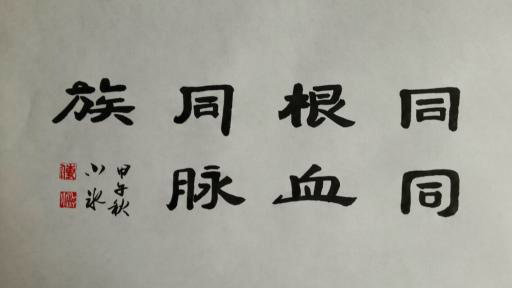 同同
根血
同脉
族
甲午秋
小冰